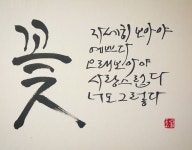 꽃
자세히 보아야
예쁘다
오래 보아야
사랑스럽다
너도 그렇다